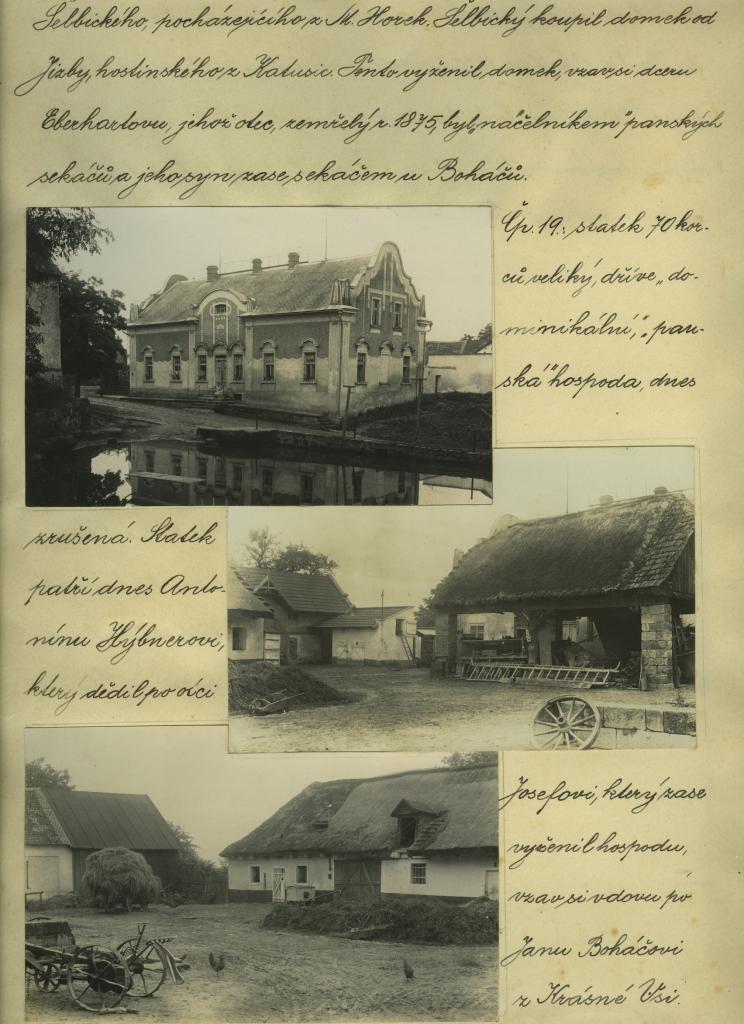 Selbického, pocházejícího z M. Horek. Selbický koupil domek od
Jizby, hostinského z Katusic. Tento vyženil domek, vzav si dceru
Eberhartovu, jehož otec, zemřelý r. 1875, byl „náčelníkem" panských
sekáčů a jeho syn zase sekáčem u Boháčů.
Čp. 19.: statek 70 kor-
ců veliký, dříve „do-
minikální," „pan-
ská" hospoda, dnes
zrušená. Statek
patří dnes Anto-
nínu Hýbnerovi,
který dědil po otci
Josefovi, který zase
vyženil hospodu,
vzav si vdovu po
Janu Boháčovi
z Krásné Vsi.